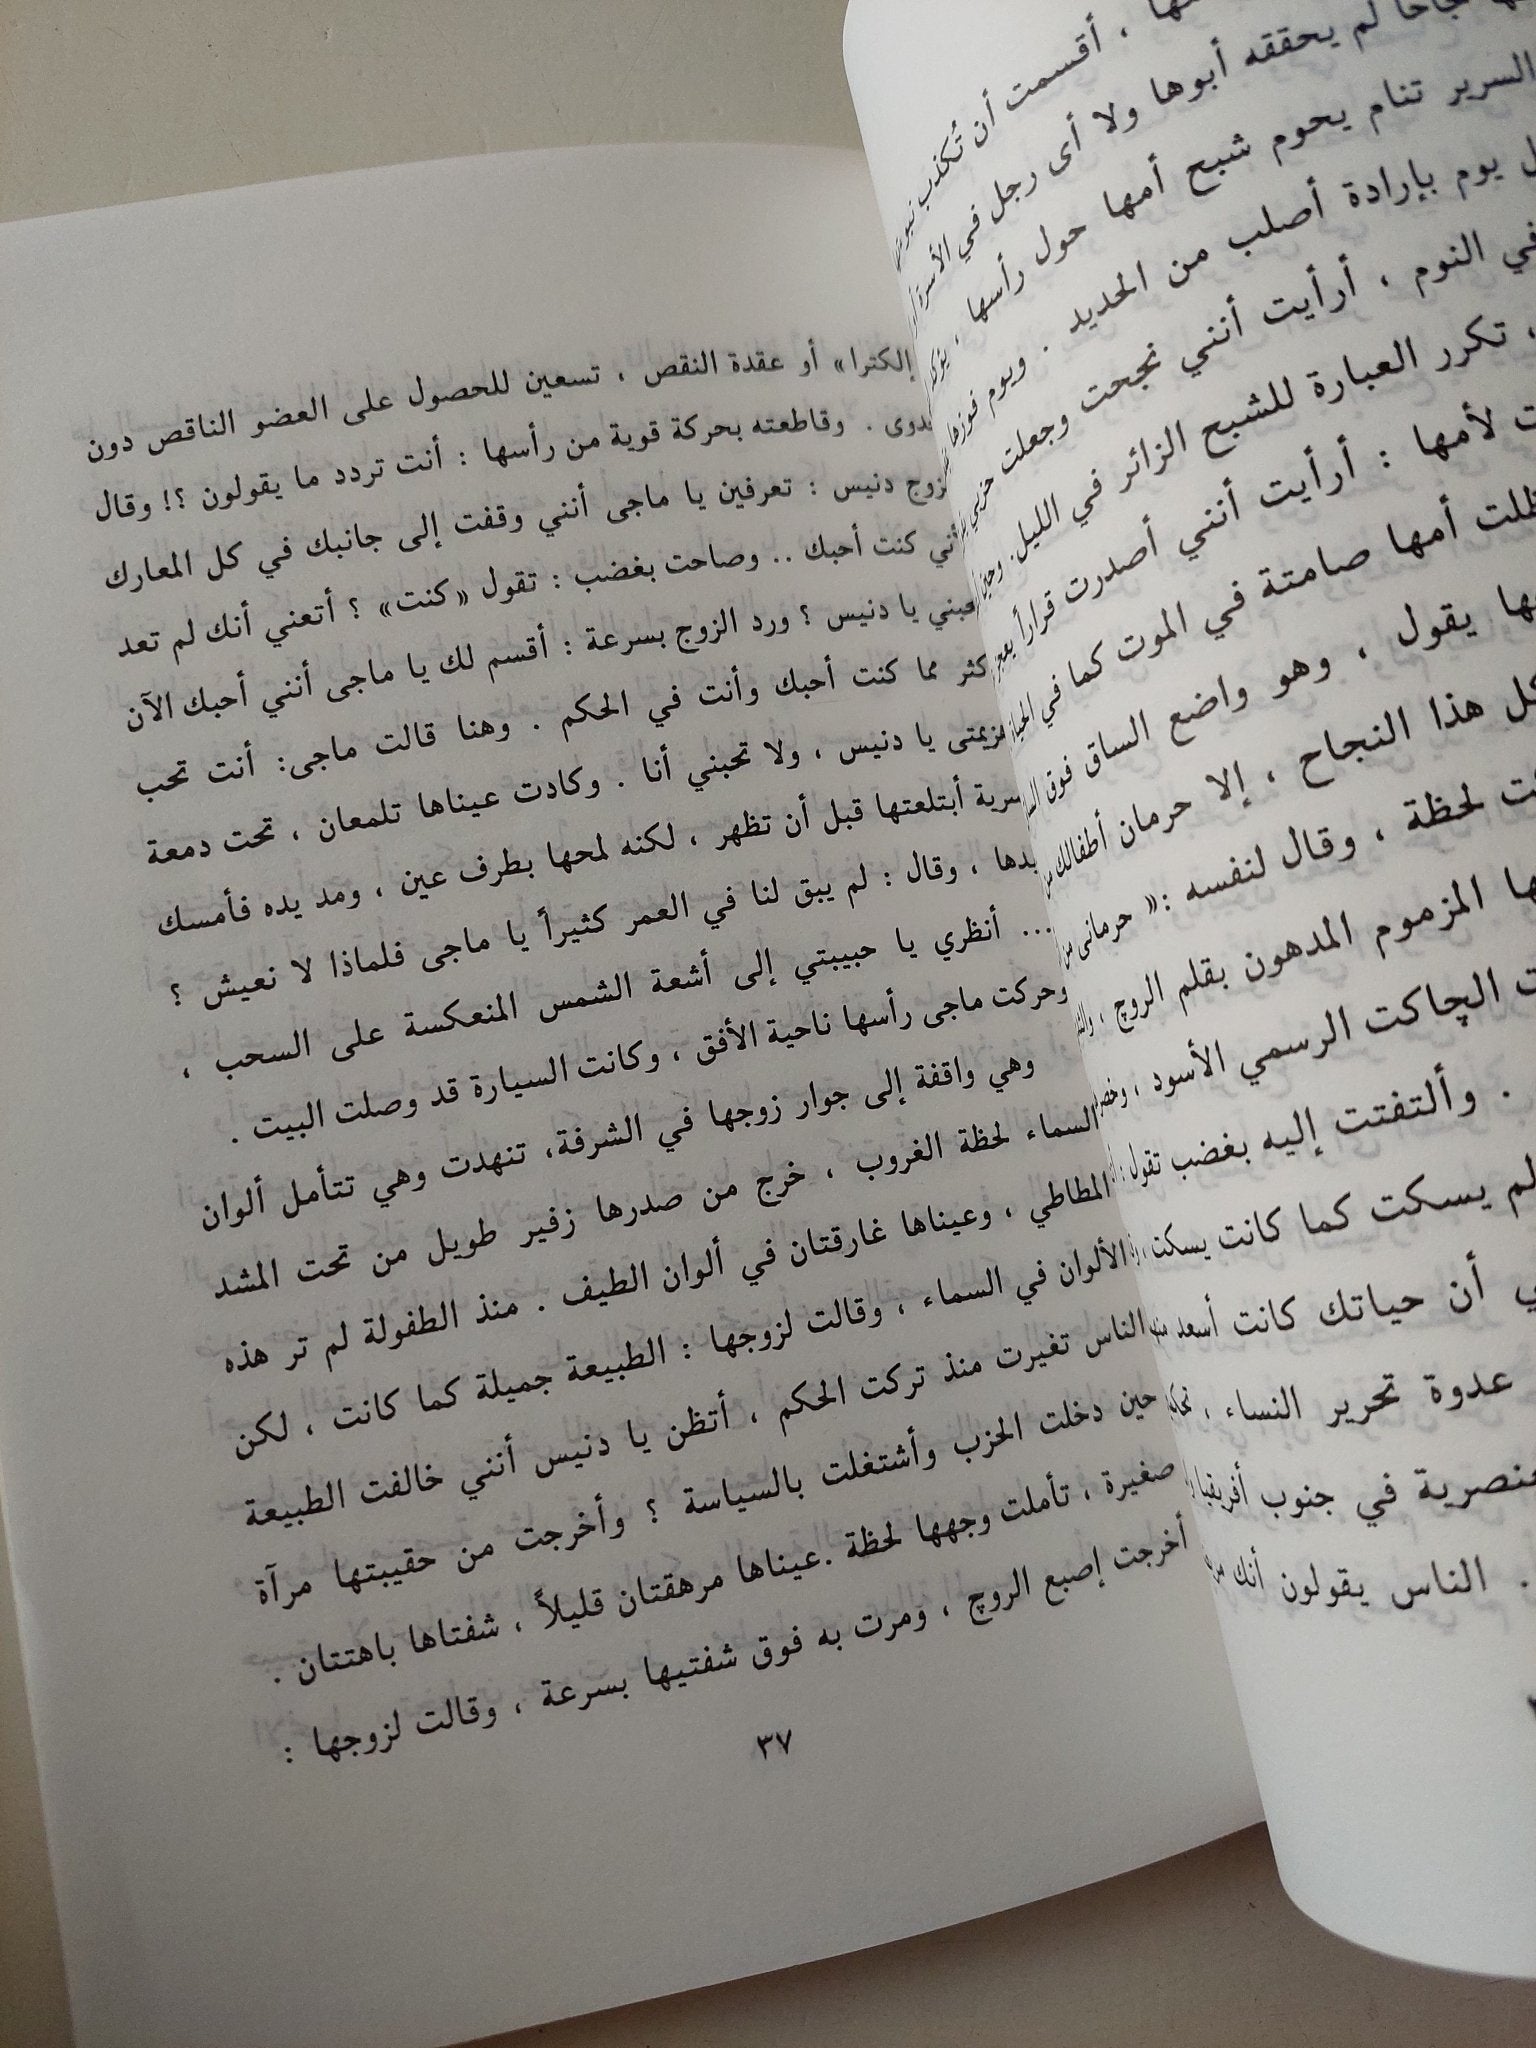 ، أقسمت أن تُكذب
لم يحققه أبوها ولا أى رجل في الأسرة
السرير تنام يحوم شبح أمها حول رأسها ،
يوم بإرادة أصلب من الحديد . ويوم فوزها
في النوم ، أرأيت أنني نجحت وجعلت حزبي
، تكرر العبارة للشبح الزائر في الليل . وحين
لأمها : أرأيت أنني أصدرت قراراً
ظلت أمها صامتة في الموت كما في الحياة
يقول ، وهو واضع الساق فوق
كل هذا النجاح ، إلا حرمان أطفالك من
لحظة ، وقال لنفسه :« حرمانى من
المزموم المدهون بقلم الروج ،
الچاكت الرسمي الأسود ،
. وألتفتت إليه بغضب تقول :
لم يسكت كما كانت يسكت ،
أن حياتك كانت أسعد
عدوة تحرير النساء ،
في جنوب أفريقيا
. الناس يقولون أنك
إلكترا» أو عقدة النقص ، تسعين للحصول على العضو الناقص دون
. وقاطعته بحركة قوية من رأسها : أنت تردد ما يقولون ؟! وقال
دنيس : تعرفين يا ماجى أنني وقفت إلى جانبك في كل المعارك
كنت أحبك .. وصاحت بغضب : تقول «كنت» ؟ أتعني أنك لم تعد
يا دنيس ؟ ورد الزوج بسرعة : أقسم لك يا ماجى أنني أحبك الآن
مما كنت أحبك وأنت في الحكم . وهنا قالت ماجى: أنت تحب
يا دنيس ، ولا تحبني أنا . وكادت عيناها تلمعان ، تحت دمعة
أبتلعتها قبل أن تظهر ، لكنه لمحها بطرف عين ، ومد يده فأمسك
، وقال : لم يبق لنا في العمر كثيراً يا ماجى فلماذا لا نعيش ؟
... أنظري يا حبيبتي إلى أشعة الشمس المنعكسة على السحب ،
وحركت ماجى رأسها ناحية الأفق ، وكانت السيارة قد وصلت البيت .
وهي واقفة إلى جوار زوجها في الشرفة، تنهدت وهي تتأمل ألوان
السماء لحظة الغروب ، خرج من صدرها زفير طويل من تحت المشد
المطاطي ، وعيناها غارقتان في ألوان الطيف . منذ الطفولة لم تر هذه
الألوان في السماء ، وقالت لزوجها : الطبيعة جميلة كما كانت ، لكن
الناس تغيرت منذ تركت الحكم ، أتظن يا دنيس أنني خالفت الطبيعة
حين دخلت الحزب وأشتغلت بالسياسة ؟ وأخرجت من حقيبتها مرآة
صغيرة ، تأملت وجهها لحظة .عيناها مرهقتان قليلاً ، شفتاها باهتتان .
أخرجت إصبع الروج ، ومرت به فوق شفتيها بسرعة ، وقالت لزوجها :
٣٧